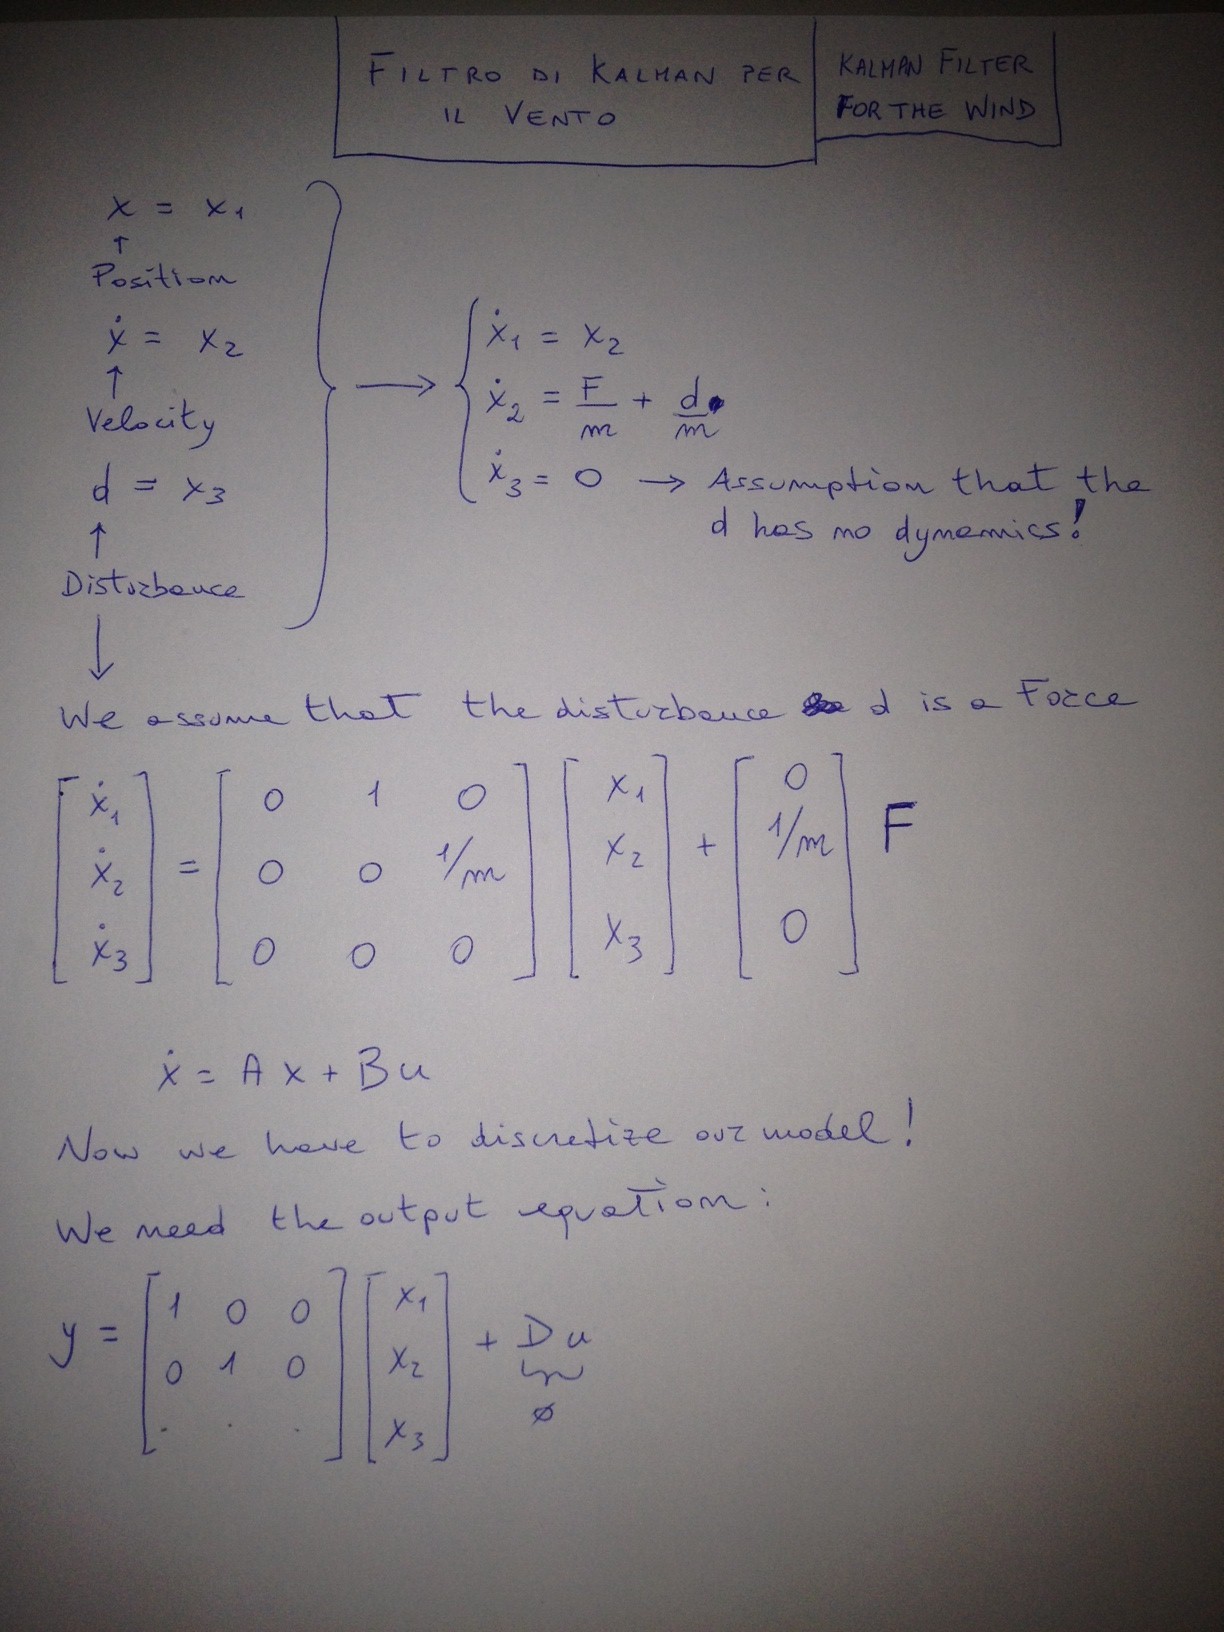 FILTRO DI KALMAN PER
IL VENTO
KALMAN FILTER
FOR THE WIND
x = x₁
↑
Position
ẋ = x₂
↑
Velocity
d = x₃
↑
Disturbance
↓
→ { ẋ₁ = x₂
ẋ₂ = F/m + d/m
ẋ₃ = 0 → Assumption that the
d has no dynamics!
We assume that the disturbance d is a Force
[ẋ₁ ẋ₂ ẋ₃] = [0 1 0; 0 0 1/m; 0 0 0] [x₁ x₂ x₃] + [0 1/m 0] F
ẋ = A x + B u
Now we have to discretize our model!
We need the output equation:
y = [1 0 0; 0 1 0; . . .] [x₁ x₂ x₃] + D u
∅